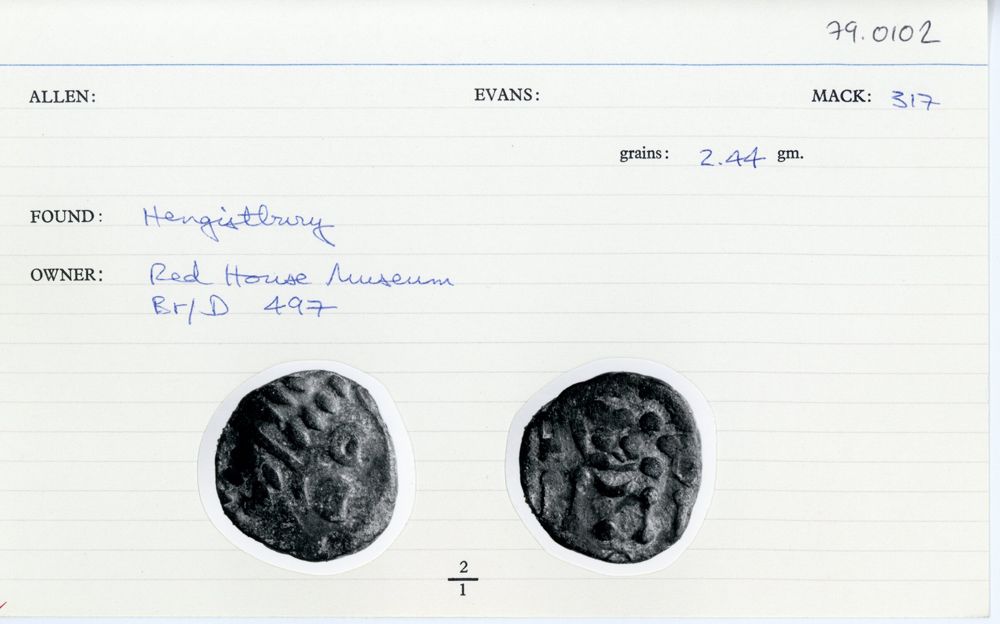 79.0102
ALLEN: EVANS: MACK: 317
grains: 2.44 gm.
FOUND: Hengistbury
OWNER: Red House Museum
Br/D 497
2
1